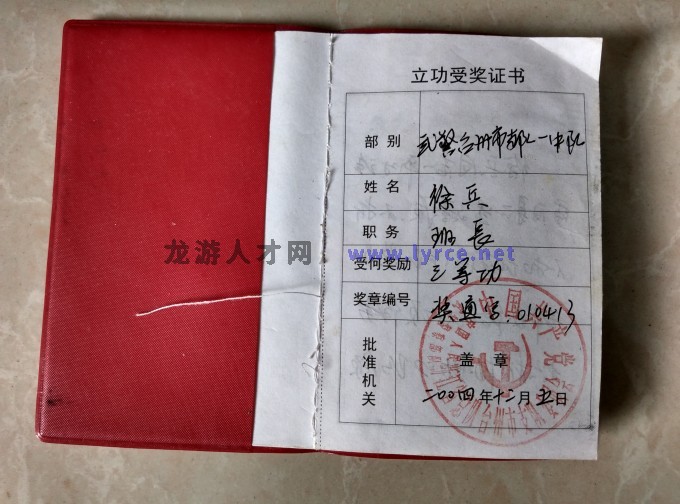 立功受奖证书
部别 武警台州市支队一中队
姓名 徐兵
职务 班長
受何奖励 三等功
奖章编号 奖通字.010413
批准机关 盖章
二00四年十二月五日
龙游人才网 www.lyrce.net